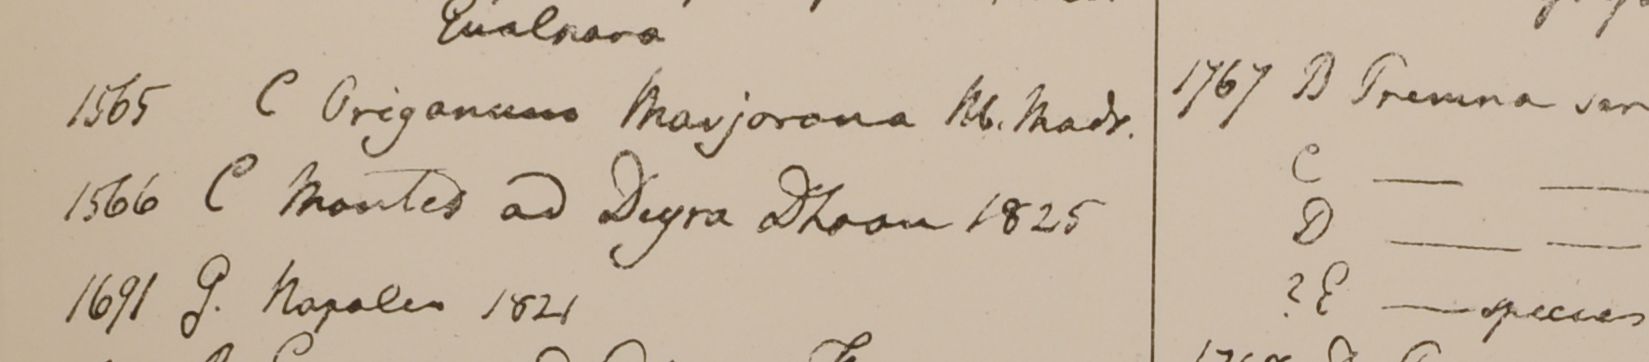 Gualpara
1565 C Origanum Marjorana Hb. Madr.
1566 C Montes ad Deyra Dhoon 1825
1691 G. Napalea 1821
1767 B Premna
C — —
D — —
? E — species